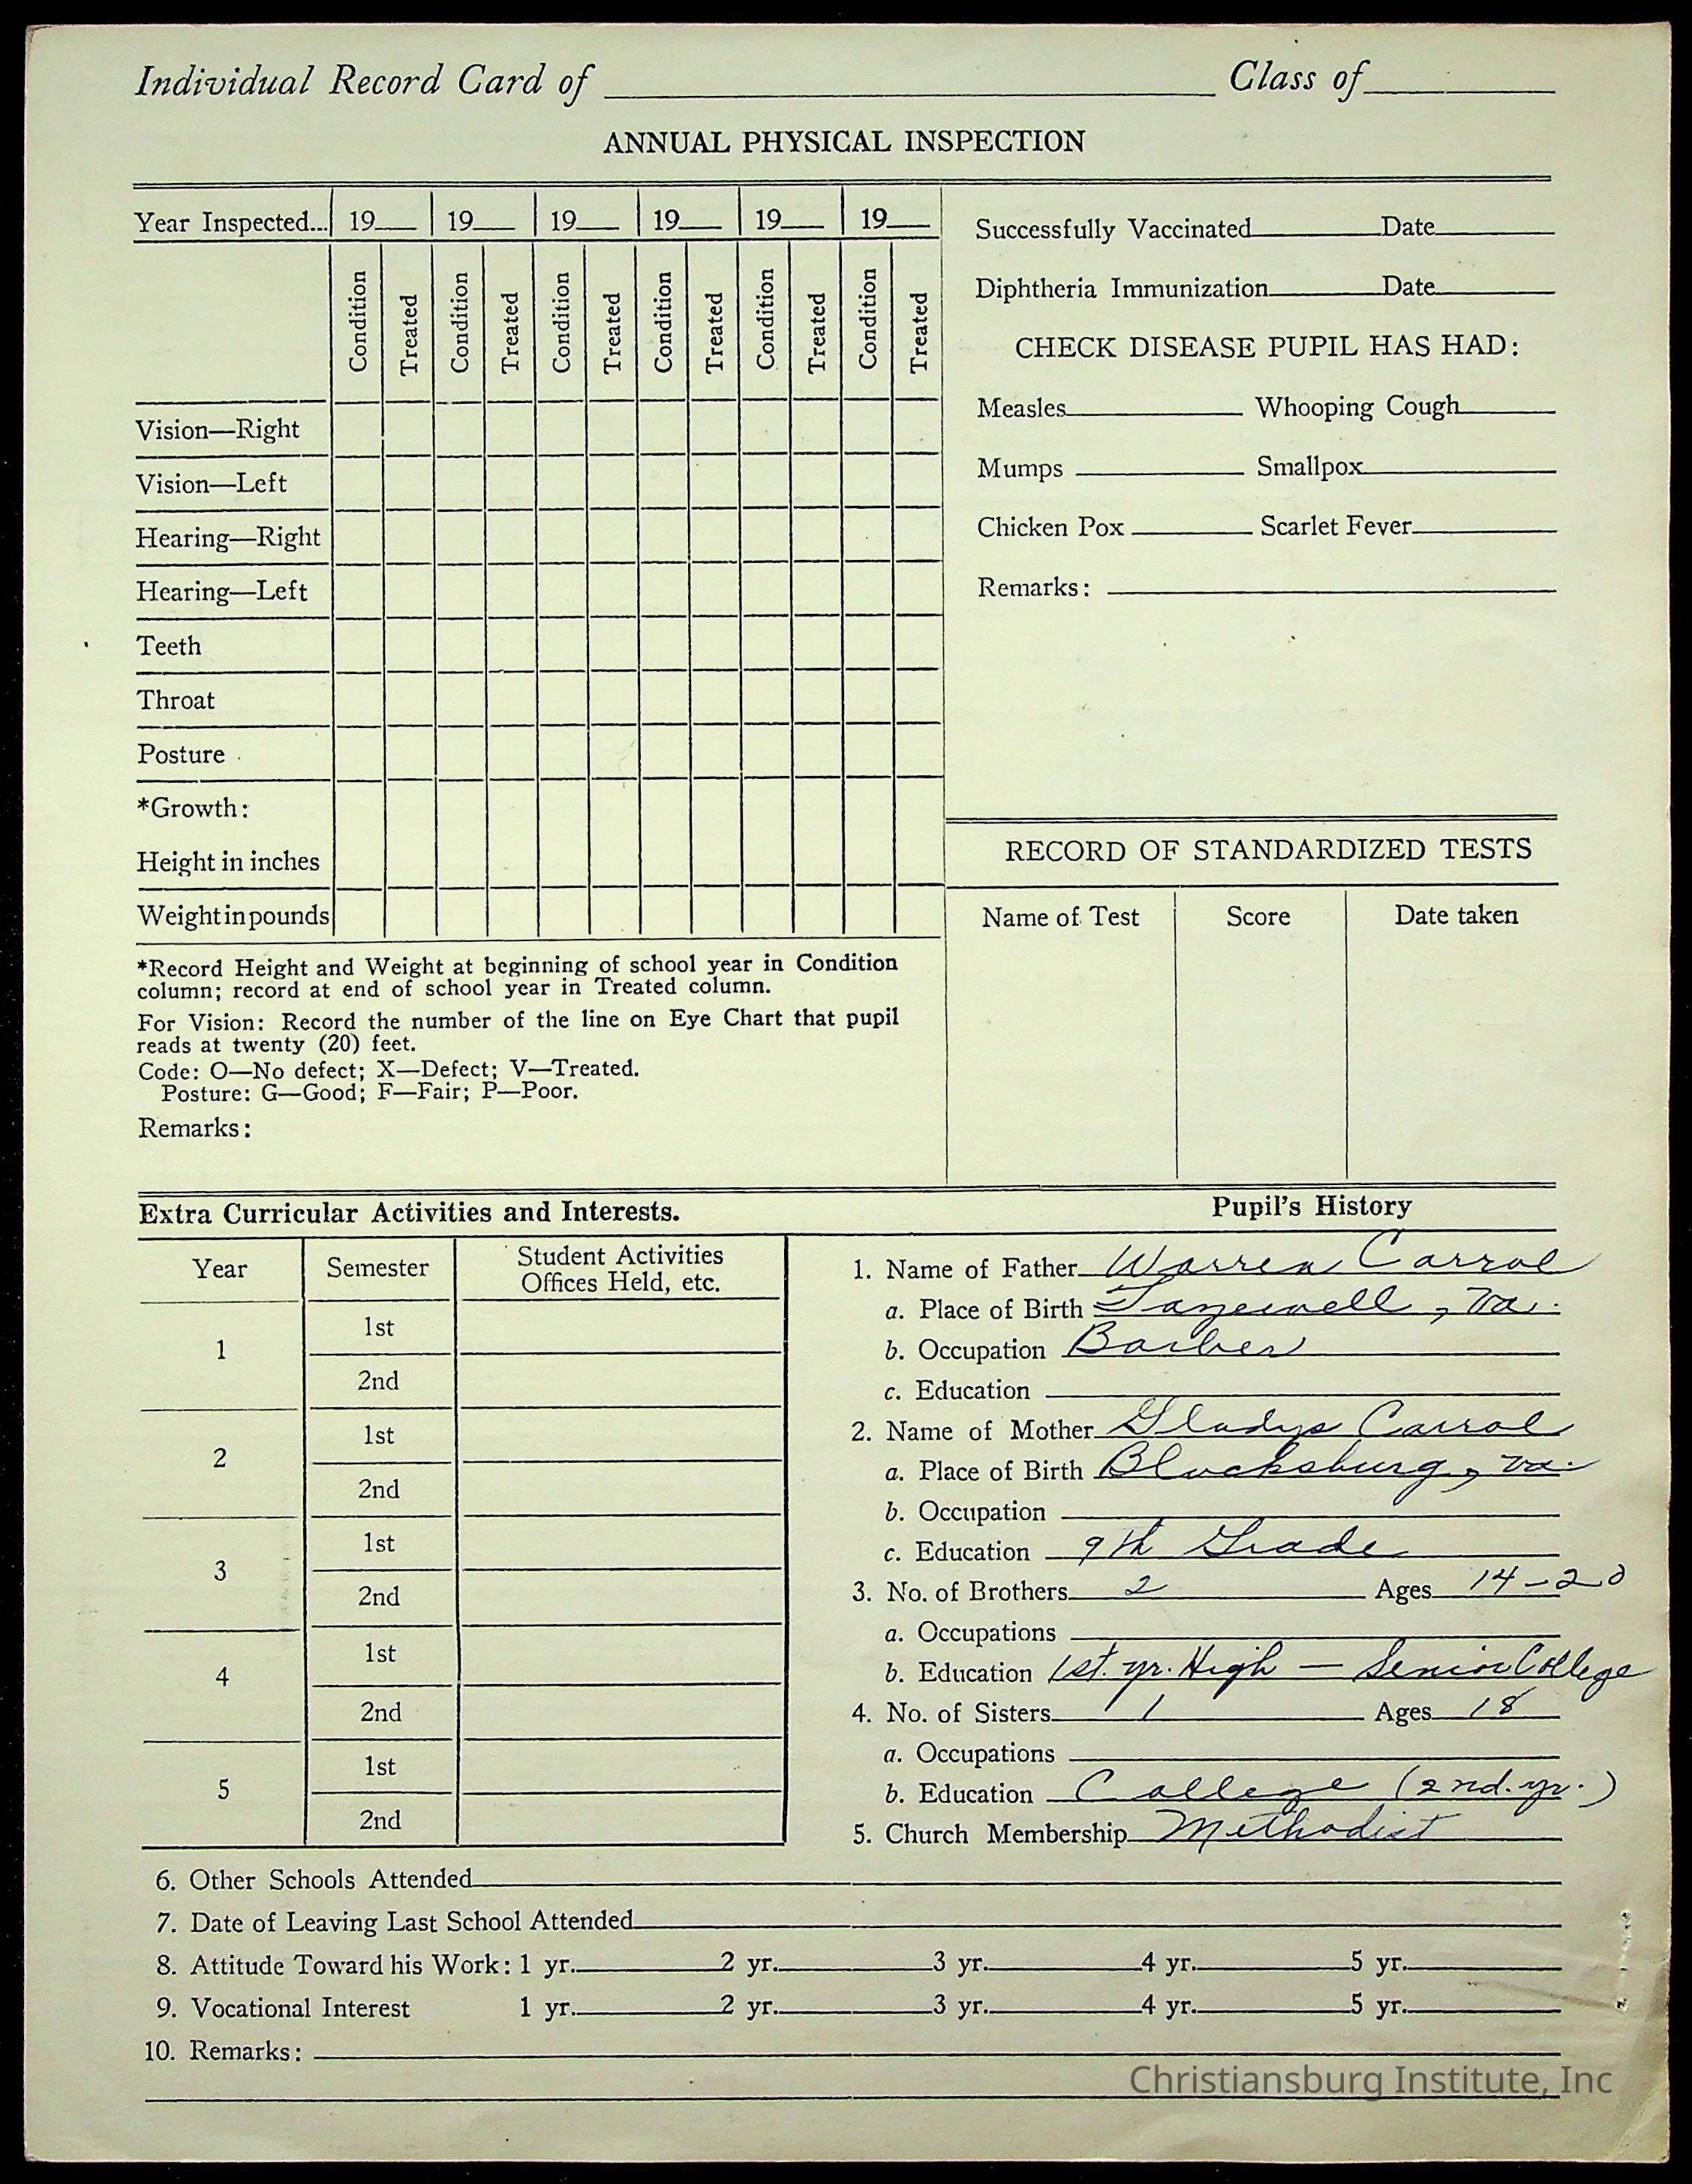 Individual Record Card of Class of
ANNUAL PHYSICAL INSPECTION
Year Inspected... 19 19 19 19 19 19
Condition Treated Condition Treated Condition Treated Condition Treated Condition Treated Condition Treated
Vision—Right
Vision—Left
Hearing—Right
Hearing—Left
Teeth
Throat
Posture
*Growth:
Height in inches
Weight in pounds
*Record Height and Weight at beginning of school year in Condition
column; record at end of school year in Treated column.
For Vision: Record the number of the line on Eye Chart that pupil
reads at twenty (20) feet.
Code: O—No defect; X—Defect; V—Treated.
Posture: G—Good; F—Fair; P—Poor.
Remarks:
Successfully Vaccinated Date
Diphtheria Immunization Date
CHECK DISEASE PUPIL HAS HAD:
Measles Whooping Cough
Mumps Smallpox
Chicken Pox Scarlet Fever
Remarks:
RECORD OF STANDARDIZED TESTS
Name of Test Score Date taken
Extra Curricular Activities and Interests.
Year Semester Student Activities
Offices Held, etc.
1 1st
2nd
2 1st
2nd
3 1st
2nd
4 1st
2nd
5 1st
2nd
Pupil's History
1. Name of Father Warren Carrol
a. Place of Birth Tazewell, Va.
b. Occupation Barber
c. Education
2. Name of Mother Gladys Carrol
a. Place of Birth Blacksburg, Va.
b. Occupation
c. Education 9th Grade
3. No. of Brothers 2 Ages 14-20
a. Occupations
b. Education 1st. yr. High — Senior College
4. No. of Sisters 1 Ages 18
a. Occupations
b. Education College (2nd. yr.)
5. Church Membership Methodist
6. Other Schools Attended
7. Date of Leaving Last School Attended
8. Attitude Toward his Work: 1 yr. 2 yr. 3 yr. 4 yr. 5 yr.
9. Vocational Interest 1 yr. 2 yr. 3 yr. 4 yr. 5 yr.
10. Remarks:
Christiansburg Institute, Inc